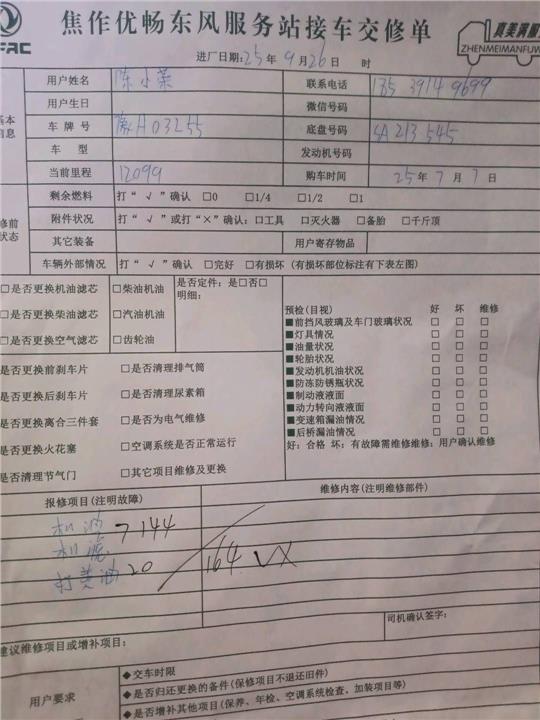 焦作优畅东风服务站接车交修单
FAC
真美满服
ZHENMEIMANFUW
进厂日期:25年9月26日 时
用户姓名 陈小荣 联系电话
用户生日 微信号码
车牌号 豫H03255 底盘号码 SA213545
车型 发动机号码
当前里程 12099 购车时间 25年7月7日
基本
信息
剩余燃料 打“√”确认 □0 □1/4 □1/2 □1
附件状况 打“√”或打“×”确认:□工具 □灭火器 □备胎 □千斤顶
其它装备 用户寄存物品
车辆外部情况 打“√”确认 □完好 □有损坏 (有损坏部位标注有下表左图)
修前
状态
□是否更换机油滤芯 □柴油机油 是否定件:是□否□
明细:
□是否更换柴油滤芯 □汽油机油
□是否更换空气滤芯 □齿轮油
预检(目视) 好 坏 维修
■前挡风玻璃及车门玻璃状况 □ □ □
■灯具情况 □ □ □
■油量状况 □ □ □
■轮胎状况 □ □ □
■发动机机油状况 □ □ □
■防冻防锈瓶状况 □ □ □
■制动液液面 □ □ □
■动力转向液液面 □ □ □
■变速箱漏油情况 □ □ □
■后桥漏油情况 □ □ □
好:合格 坏:有故障需维修维修:用户确认维修
是否更换前刹车片 □是否清理排气筒
是否更换后刹车片 □是否清理尿素箱
是否更换离合三件套 □是否为电气维修
是否更换火花塞 □空调系统是否正常运行
是否清理节气门 □其它项目维修及更换
报修项目(注明故障) 维修内容(注明维修部件)
机油 144
机滤
打黄油 20 164
司机确认签字:
建议维修项目或增补项目:
用户要求
◆交车时限
◆是否归还更换的备件(保修项目不退还旧件)
◆是否增补其他项目(保养、年检、空调系统检查,加装项目等)